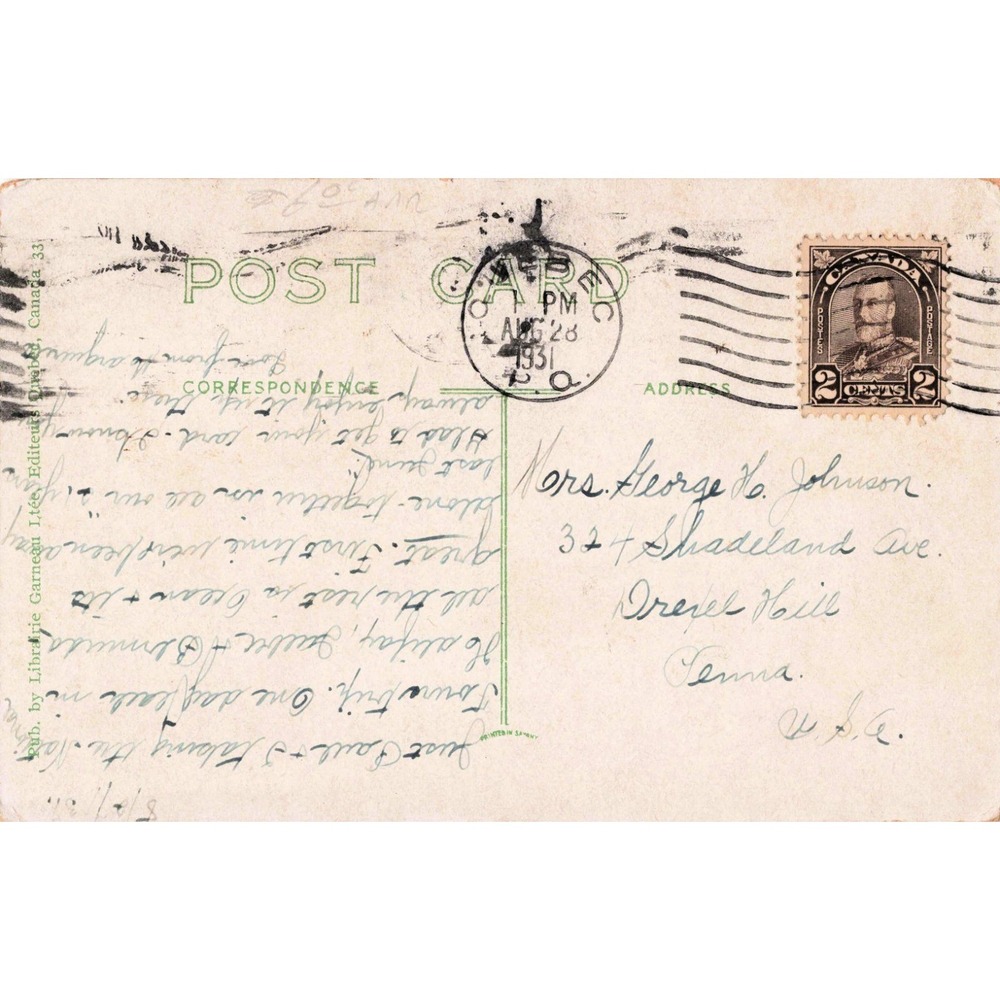 POST CARD
CORRESPONDENCE
ADDRESS
QUEBEC
1 PM
AUG 28
1931
P.Q.
CANADA
POSTES POSTAGE
2 CENTS 2
Mrs. George H. Johnson.
324 Shadeland Ave.
Drexel Hill
Penna.
U.S.A.
8/27/31.
Just Paul & I taking the
Fours trip. One day each in
Halifax, Quebec & Bermuda
all the rest is Ocean & its
great. First time we've been away
alone together in all our "21 years
last June."
Glad to get your card. I know you
always enjoy it up there.
Love from
Pub. by Librairie Garneau Ltée, Editeurs Quebec, Canada 33
PRINTED IN SAXONY